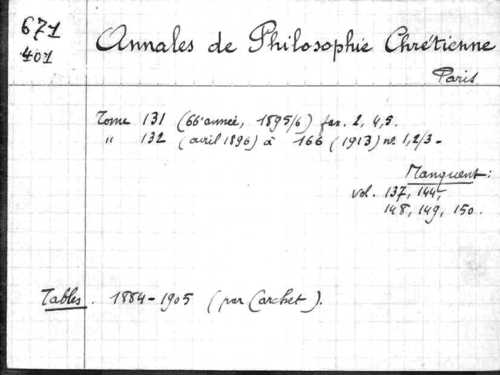 671
401
Annales de Philosophie Chrétienne
Paris
Tome 131 (66e année, 1895/6) fax. 2, 4, 5.
" 132 (avril 1896) à 166 (1913) nos 1, 2/3 -
Manquent :
vol. 137, 144,
148, 149, 150.
Tables. 1884-1905 (par Carchet).